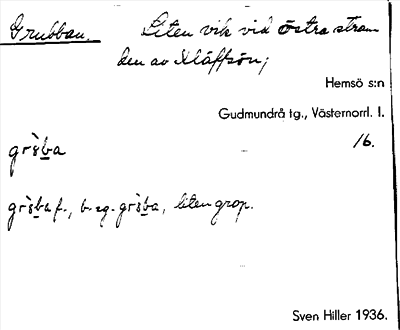 Grubban. Liten vik vid östra stran
den av Kläffsön;
Hemsö s:n
Gudmundrå tg., Västernorrl. l.
16.
grs̀b̲a
grs̀b̲a f., b. sg. grs̀b̲a, liten grop.
Sven Hiller 1936.